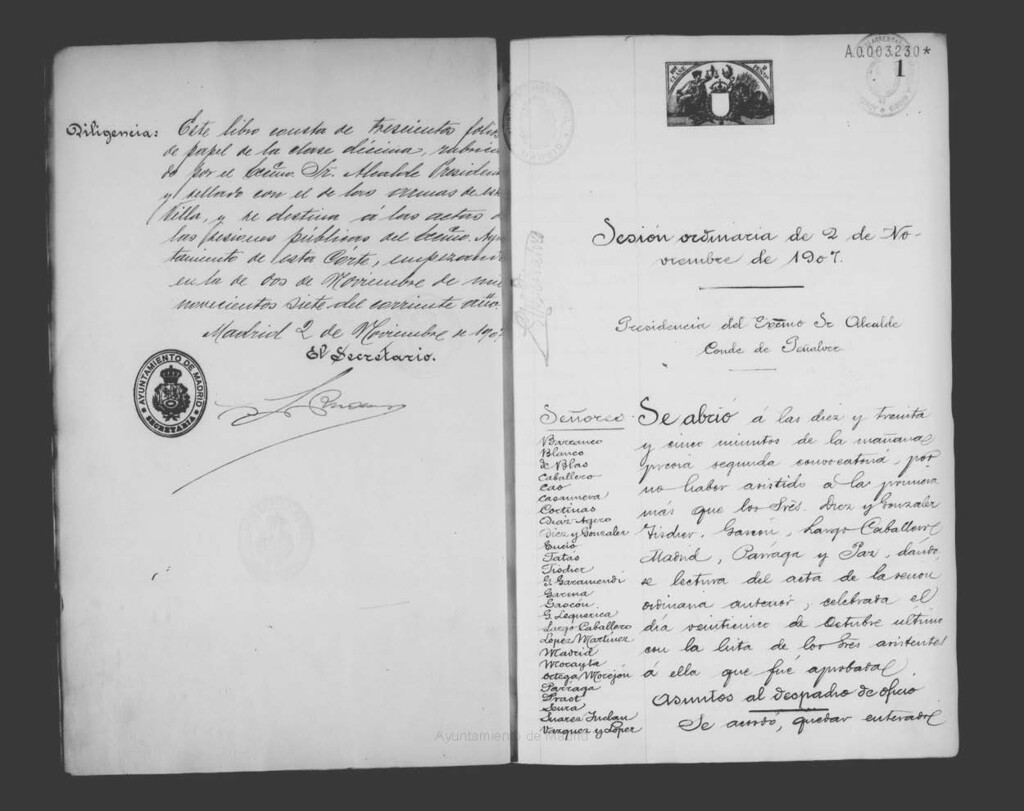 Diligencia: Este libro consta de trescientos folios
de papel de la clase décima, rubrica
do por el Excmo. Sr. Alcalde Presiden
y sellado con el de las armas de es
Villa, y se destina á las actas d
las sesiones públicas del Excmo. Ayu
tamiento de esta Córte, empezand
en la de dos de Noviembre de mil
novecientos siete del corriente año.
Madrid 2 de Noviembre de 1907
El Secretario.
AYUNTAMIENTO DE MADRID
SECRETARIA
A.0.003.230*
1
Sesión ordinaria de 2 de No-
viembre de 1907.
Presidencia del Excmo Sr Alcalde
Conde de Peñalver
Señores
Barranco
Blanco
de Blas
Caballero
Cao
Casanueva
Cortinas
Diaz Agero
Diez y Gonzalez
Fischer
G. Garamendi
Gascón.
G. Lequerica
Largo Caballero
Lopez Martinez
Madrid
Morayta
Ortega Morejón
Parraga
Prast
Suarez Inclan
Vazquez y Lopez
Se abrió á las diez y treinta
y cinco minutos de la mañana
previa segunda convocatoria, por
no haber asistido á la primera
más que los Sres. Diez y Gonzalez
Fischer, Gascón, Largo Caballero
Madrid, Párraga y Paz, dándo
se lectura del acta de la sesión
ordinaria anterior, celebrada el
día veinticinco de Octubre último
con la lista de los Sres asistentes
á ella que fué aprobada
Asuntos al despacho de oficio
Se acordó, quedar enterado
Ayuntamiento de Madrid